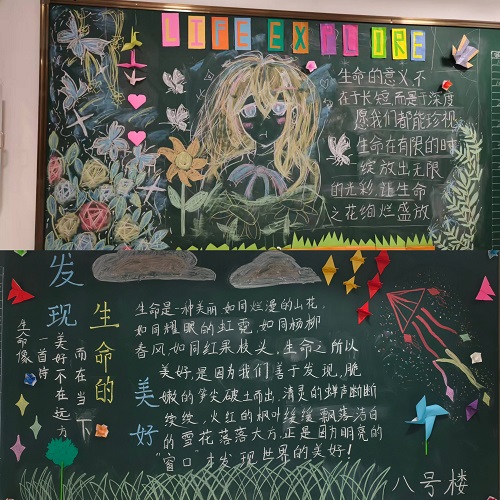 LIFE EXPLORE
生命的意义不
在于长短而是于深度
愿我们都能珍视
生命在有限的时
绽放出无限
的光彩，让生命
之花绚烂盛放
发现
生命的
美好
而在当下
美好不在远方
一首诗
生命像
生命是一种美丽如同烂漫的山花，
如同耀眼的虹霓，如同杨柳
春风，如同红果枝头，生命之所以
美好，是因为我们善于发现，脆
嫩的笋尖破土而出，清灵的蝉声断断
续续，火红的枫叶缓缓飘落，洁白
的雪花落落大方，正是因为明亮的
“窗口”才发现世界的美好！
八号楼